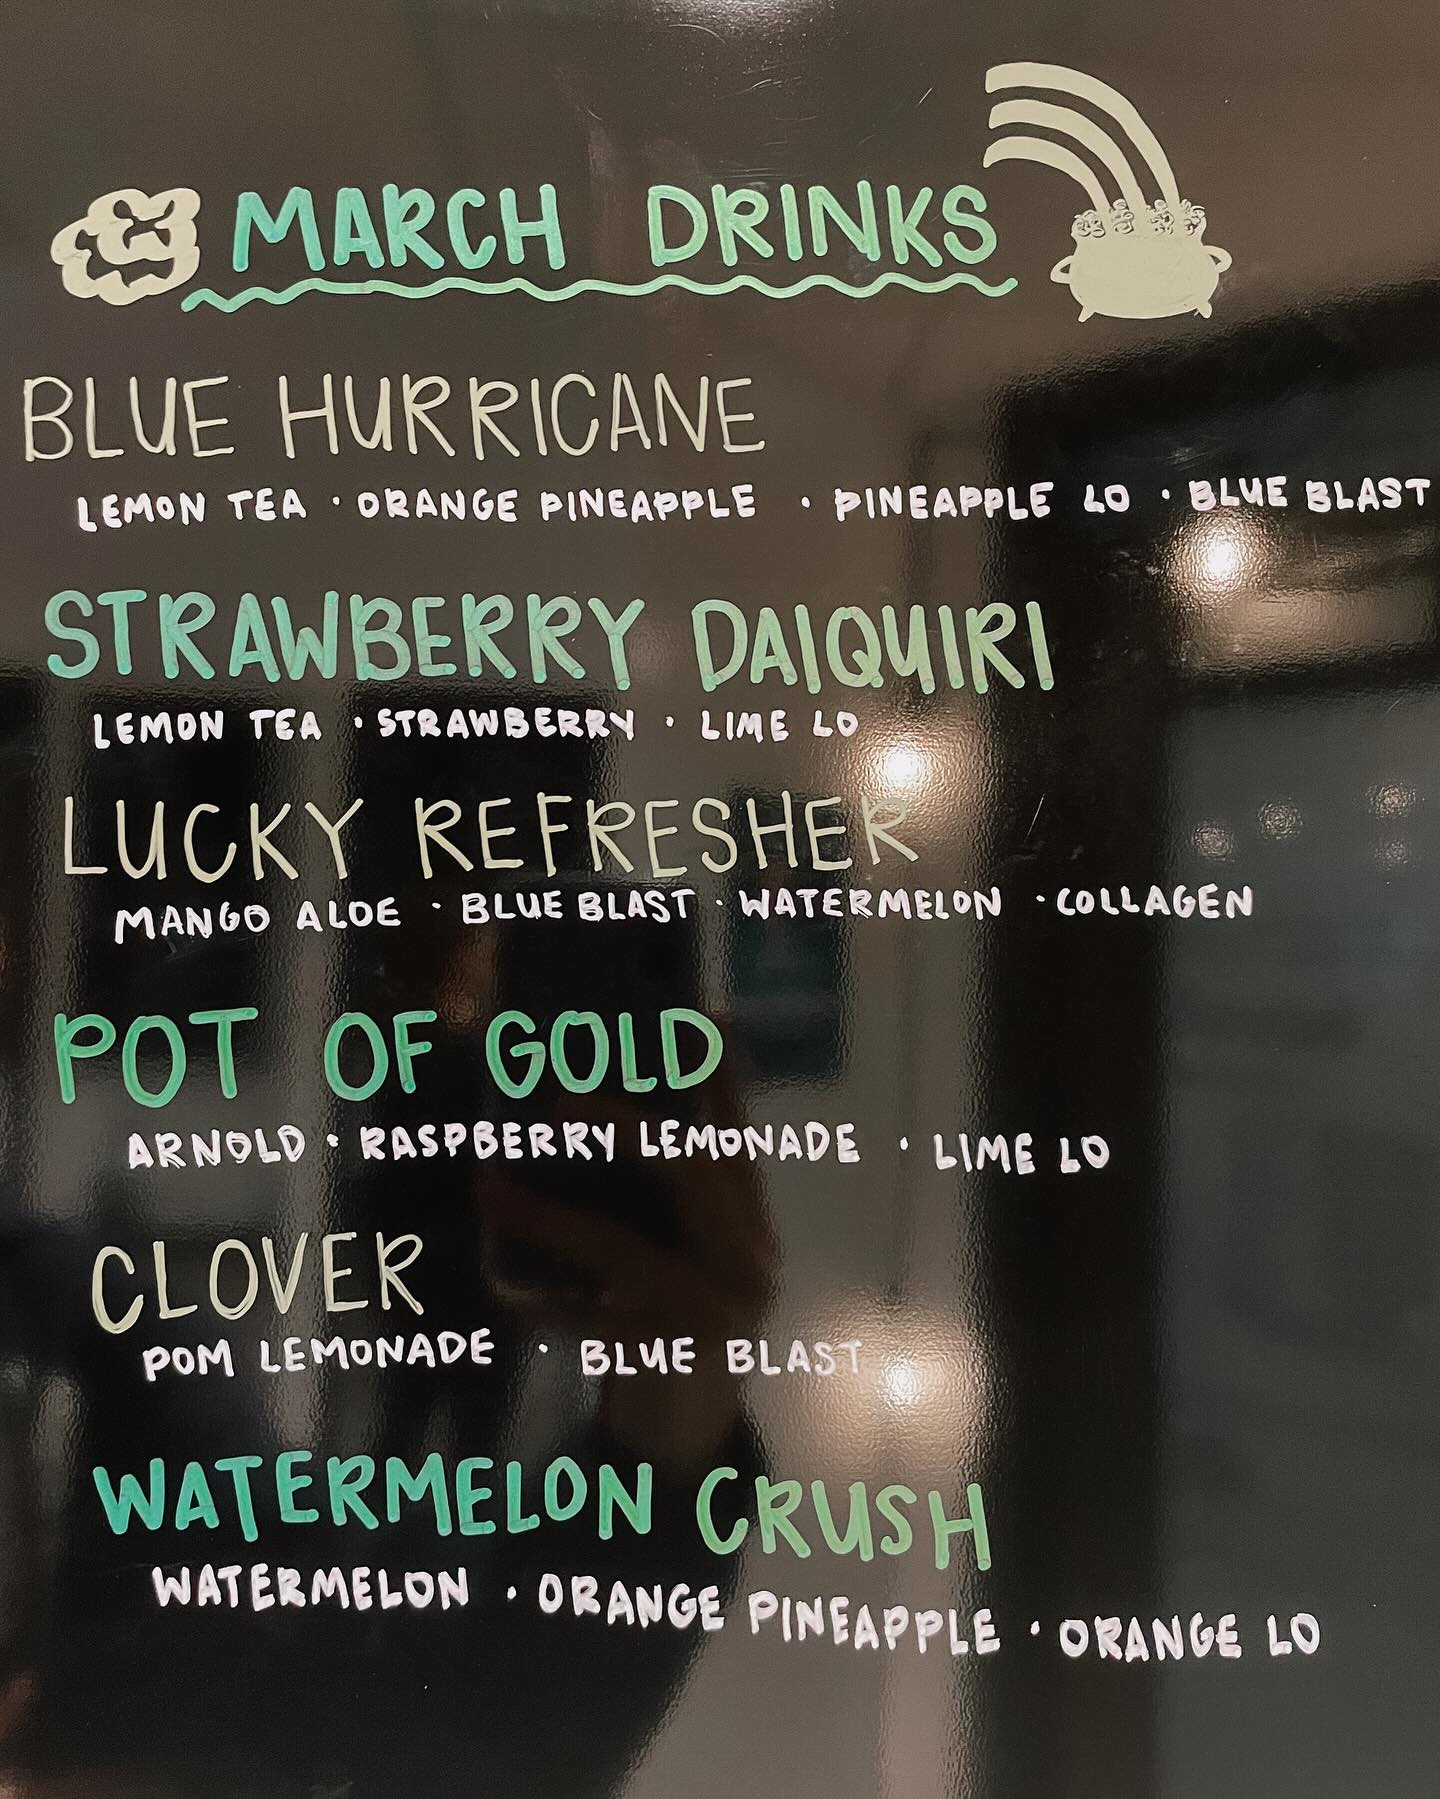 MARCH DRINKS
BLUE HURRICANE
LEMON TEA · ORANGE PINEAPPLE · PINEAPPLE LO · BLUE BLAST
STRAWBERRY DAIQUIRI
LEMON TEA · STRAWBERRY · LIME LO
LUCKY REFRESHER
MANGO ALOE · BLUE BLAST · WATERMELON · COLLAGEN
POT OF GOLD
ARNOLD · RASPBERRY LEMONADE · LIME LO
CLOVER
POM LEMONADE · BLUE BLAST
WATERMELON CRUSH
WATERMELON · ORANGE PINEAPPLE · ORANGE LO